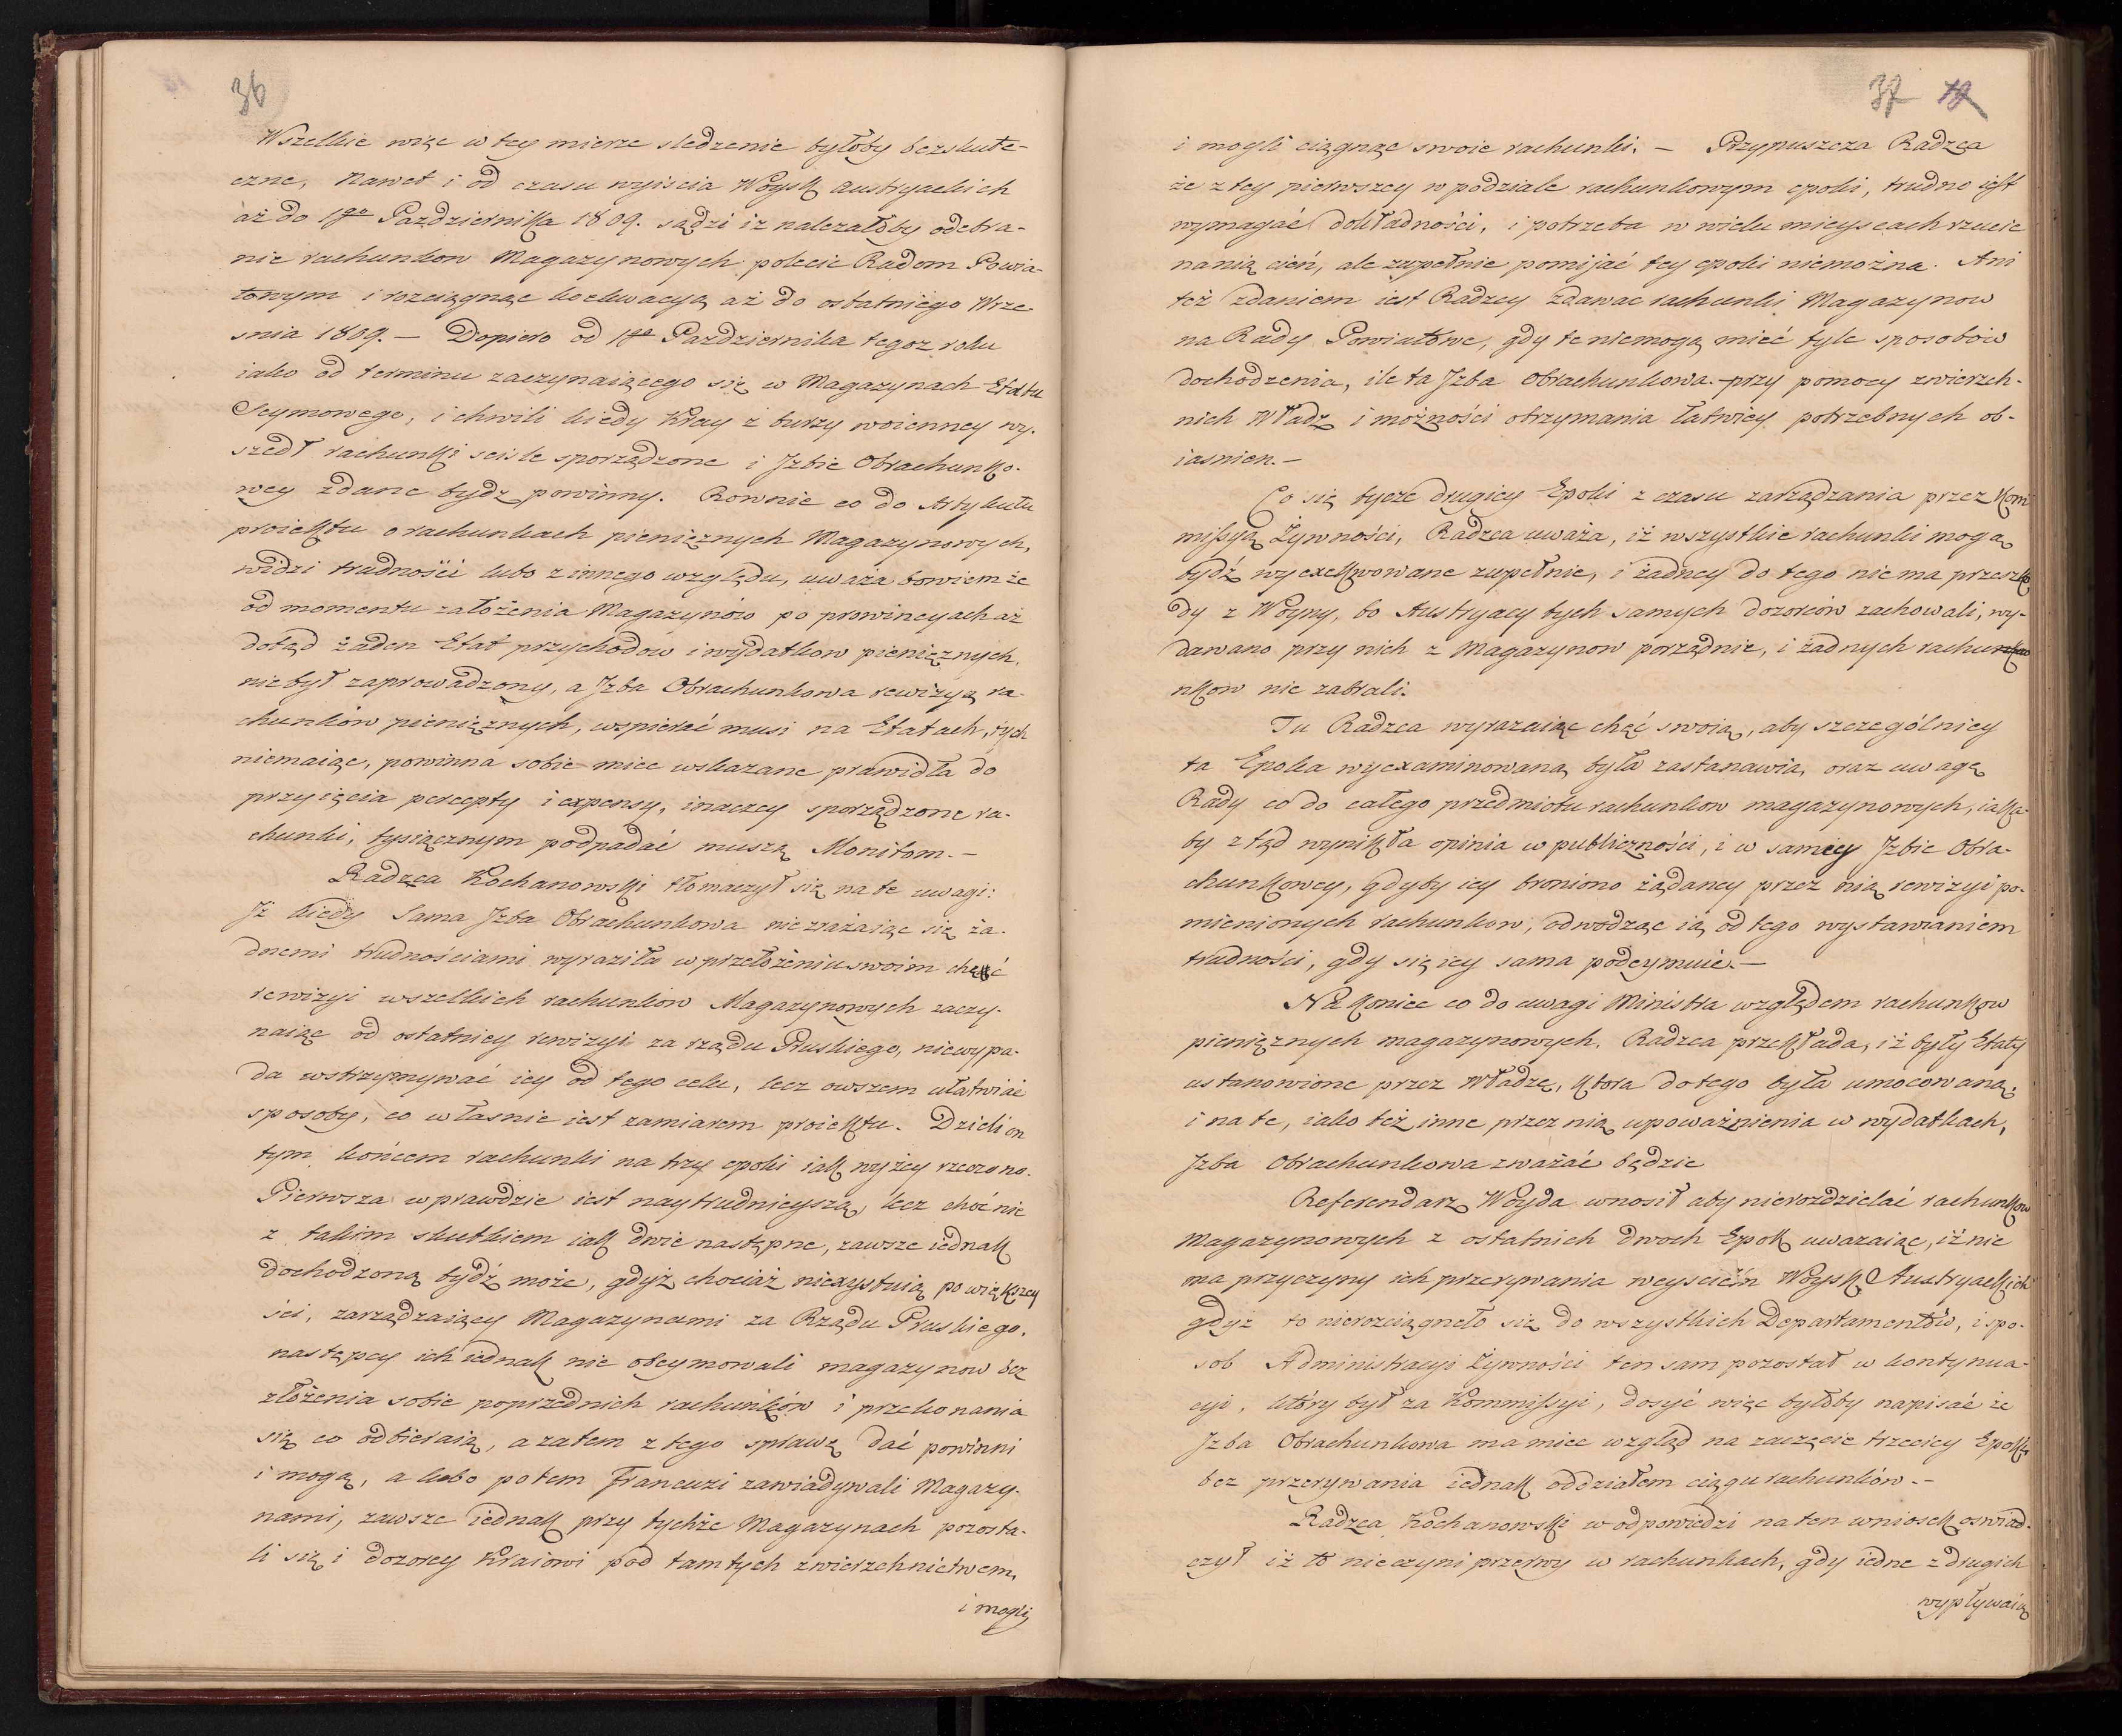 36
Wszelkie więc w tey mierze sledzenie byłoby bezskute-
czne, Nawet i od czasu wyiscia Woysk Austryackich
aż do 1go Pazdziernika 1809. sądzi iz nalezałoby odebra-
nie rachunkow Magazynowych polecic Radom Powia-
towym i rozciągnąc ko­ekwacyą aż do ostatniego Wrze-
snia 1809. — Dopiero od 1go Pazdziernika tegoz roku
iako od terminu zaczynaiącego się w Magazynach Etatu
Seymowego, i chwili kiedy Kray z burzy woienney wy-
szedł rachunki scisle sporządzone i Izbie Obrachunko-
wey zdane bydz powinny. Rownie co do Artykułu
proiektu o rachunkach pieniężnych Magazynowych,
widzi trudności lubo z innego względu, uważa bowiem że
od momentu założenia Magazynów po prowincyach aż
dotąd żaden Etat przychodow i wydatkow pieniężnych,
nie był zaprowadzony, a Izba Obrachunkowa rewizyą ra-
chunków pieniężnych, wspierać musi na Etatach, tych
niemaiąc, powinna sobie miec wskazane prawidła do
przyięcia percepty i expensy, inaczey sporządzone ra-
chunki, tysiącznym podpadać muszą Monitom. —
Radzca Kochanowski tłomaczył się na te uwagi:
Iż kiedy Sama Izba Obrachunkowa niezrażaiąc się ża-
dnemi trudnościami wyraziła w przełożeniu swoim chęć
rewizyi wszelkich rachunków Magazynowych zaczy-
naiąc od ostatniey rewizyi za rządu Pruskiego, niewypa-
da wstrzymywać iey od tego celu, lecz owszem ułatwiać
sposoby, co własnie iest zamiarem proiektu. Dzieli on
tym końcem rachunki na trzy epoki iak wyżey rzeczono.
Pierwsza wprawdzie iest naytrudnieyszą, lecz choć nie
z takim skutkiem iak dwie następne, zawsze iednak
dochodzoną bydź może, gdyż chociaż niexystuią po większey
ści, zarządzaiący Magazynami za Rządu Pruskiego,
następcy ich iednak nie obeymowali magazynow bez
złożenia sobie poprzednich rachunków i przekonania
się co odbieraią, a zatem z tego sprawę dać powinni
i mogą, a lubo potem Francuzi zawiadywali Magazy-
nami, zawsze iednak przy tychże Magazynach pozosta-
li się i dozorcy Kraiowi pod tamtych zwierzchnictwem,
i mogli
37 19
i mogli ciągnąc swoie rachunki. — Przypuszcza Radzca
że z tey pierwszey w podziale rachunkowym epoki, trudno iest
wymagać dokładności, i potrzeba w wielu mieyscach rzucic
nanią cień, ale zupełnie pomijać tey epoki niemożna. Ani
też zdaniem iest Radzcy zdawac rachunki Magazynow
na Rady Powiatowe, gdy te niemogą mieć tyle sposobów
dochodzenia, ile ta Izba Obrachunkowa. przy pomocy zwierzch-
nich Władz i możności otrzymania łatwiey potrzebnych ob-
iasnien. —
Co się tycze drugiey Epoki z czasu zarządzania przez Kom
missyą Żywności, Radzca uważa, iż wszystkie rachunki mogą
bydź wyexekwowane zupełnie, i żadney do tego niema przeszko
dy z Woyny, bo Austryacy tych samych dozorców zachowali, wy-
dawano przy nich z Magazynow porządnie, i żadnych rachu
nkow nie zabrali.
Tu Radzca wyrazaiąc chęć swoią, aby szczególniey
ta Epoka wyexaminowaną była zastanawia, oraz uwagę
Rady co do całego przedmiotu rachunkow magazynowych, iaka-
by ztąd wynikła opinia w publiczności, i w samiey Izbie Obra-
chunkowey, gdyby iey broniono żądaney przez nią rewizyi po-
mienionych rachunkow, odwodząc ią od tego wystawianiem
trudności, gdy się iey sama podeymuie. —
Na koniec co do uwagi Ministra względem rachunkow
pieniężnych magazynowych. Radzca przekłada, iż były Etaty
ustanowione przez Władzę, ktora do tego była umocowaną,
i na te, iako też inne przez nią upoważnienia w wydatkach,
Izba Obrachunkowa zważać będzie
Referendarz Woyda wnosił aby nierozdzielać rachunkow
Magazynowych z ostatnich dwoch Epok uwazaiąc, iż nie
ma przyczyny ich przerywania weyscièm Woysk Austryackich
gdyż to nierozciągneło się do wszystkich Departamentów, i spo-
sob Administracyi Żywności ten sam pozostał w kontynua-
cyi, który był za Kommissyi, dosyć więc byłoby napisać że
Izba Obrachunkowa ma miec wzgląd na zaczęcie trzeciey Epoki,
bez przerywania iednak oddziałem ciągu rachunków. —
Radzca Kochanowski w odpowiedzi na ten wniosek oswiad-
czył iż to nie czyni przerwy w rachunkach, gdy iedne z drugich
wypływaią